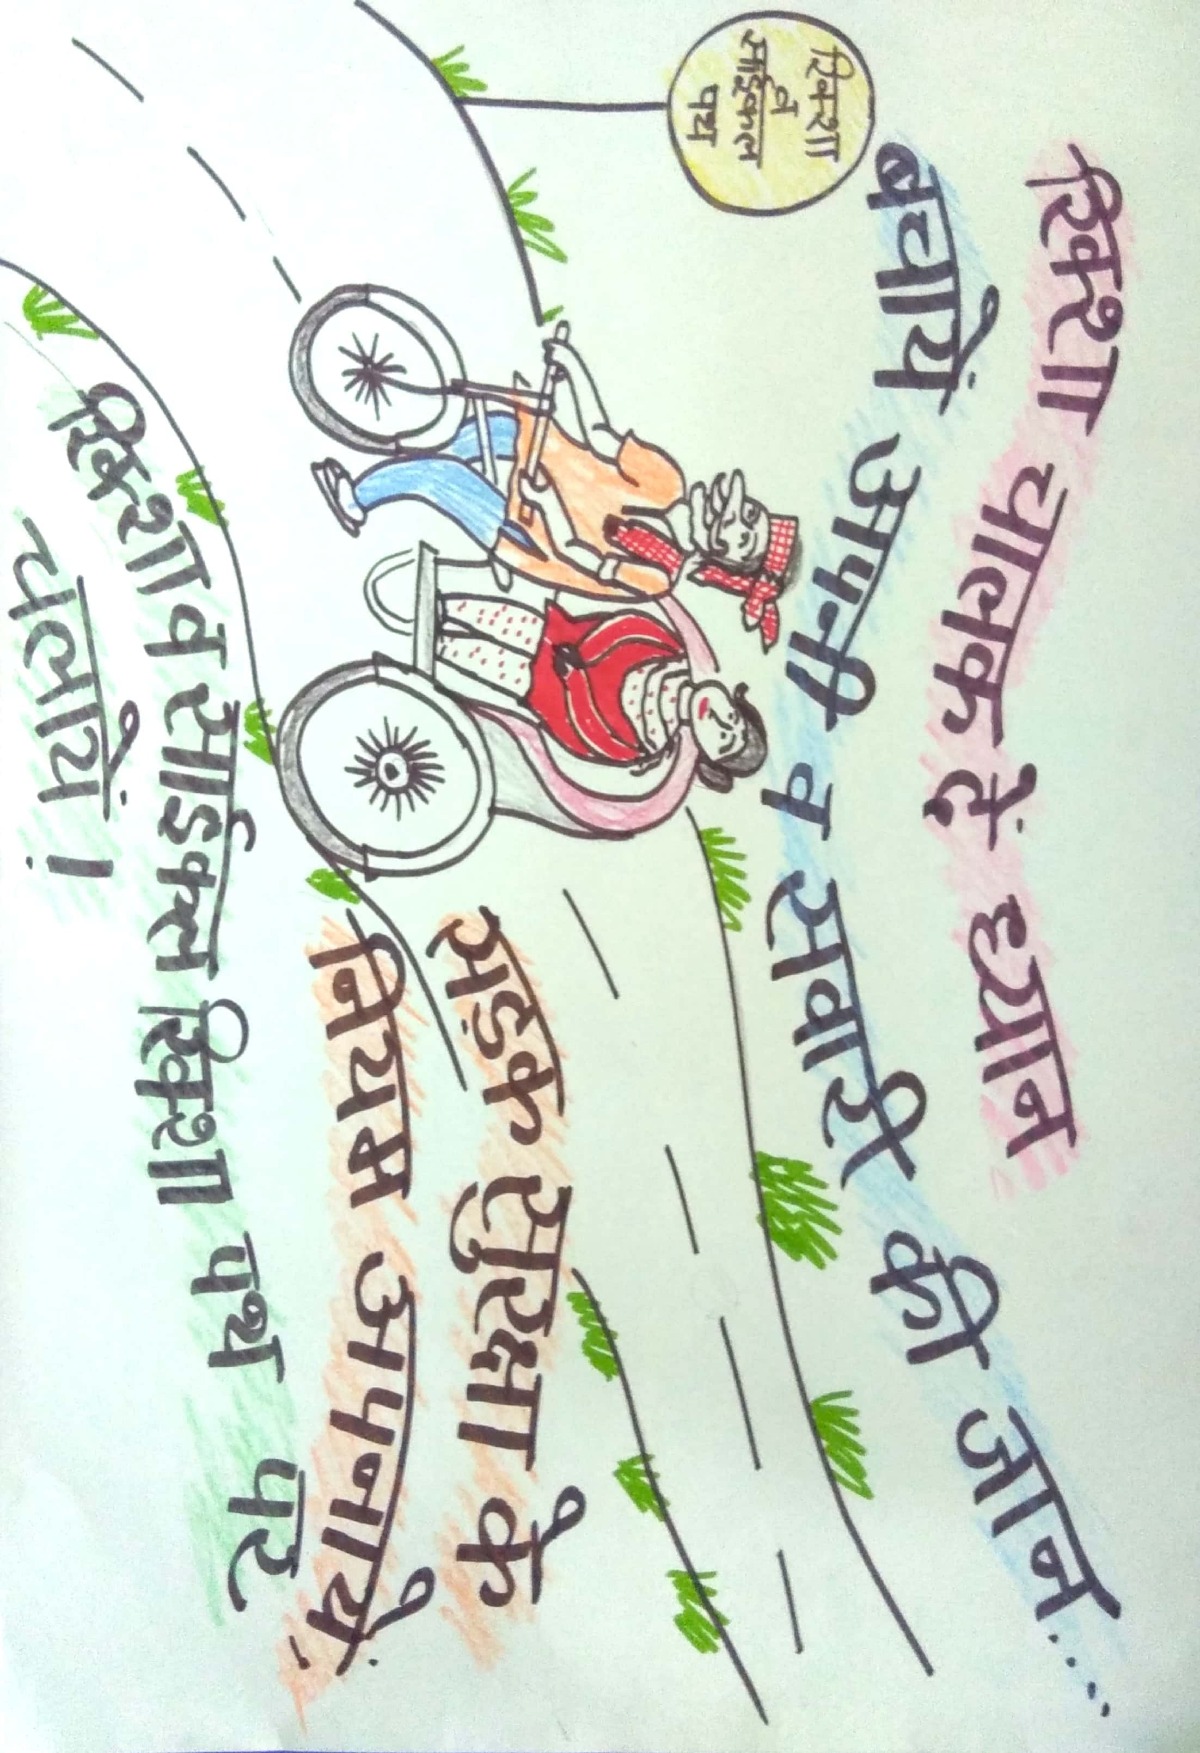 रिक्शा चालक दें ध्यान
बचायें अपनी व सवारी की जान....
रिक्शा
व
साईकल
पथ
सड़क सुरक्षा के
नियम अपनायें,
रिक्शा व साईकल रिक्शा पथ पर
चलायें।